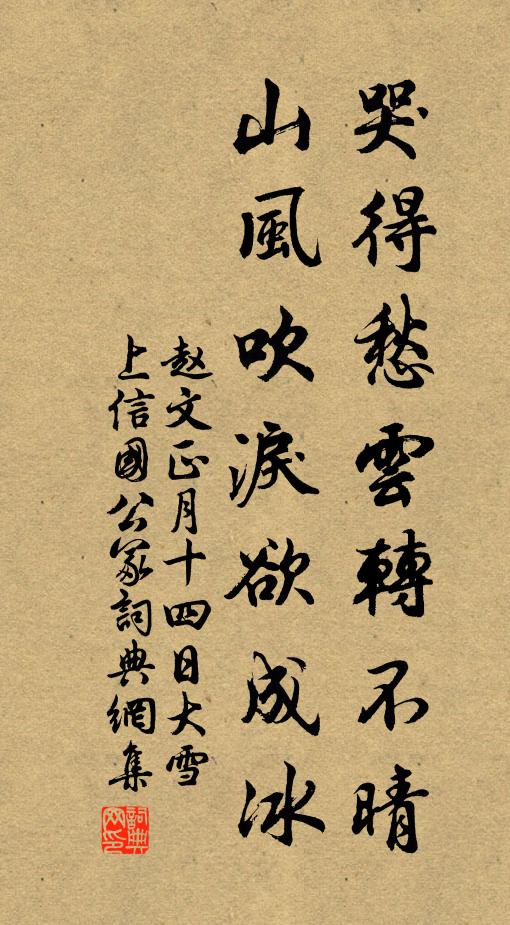 哭得愁雲轉不晴
山風吹淚欲成冰
赵文正月十四日大雪
上信國公冢詞典網集
詞典网印